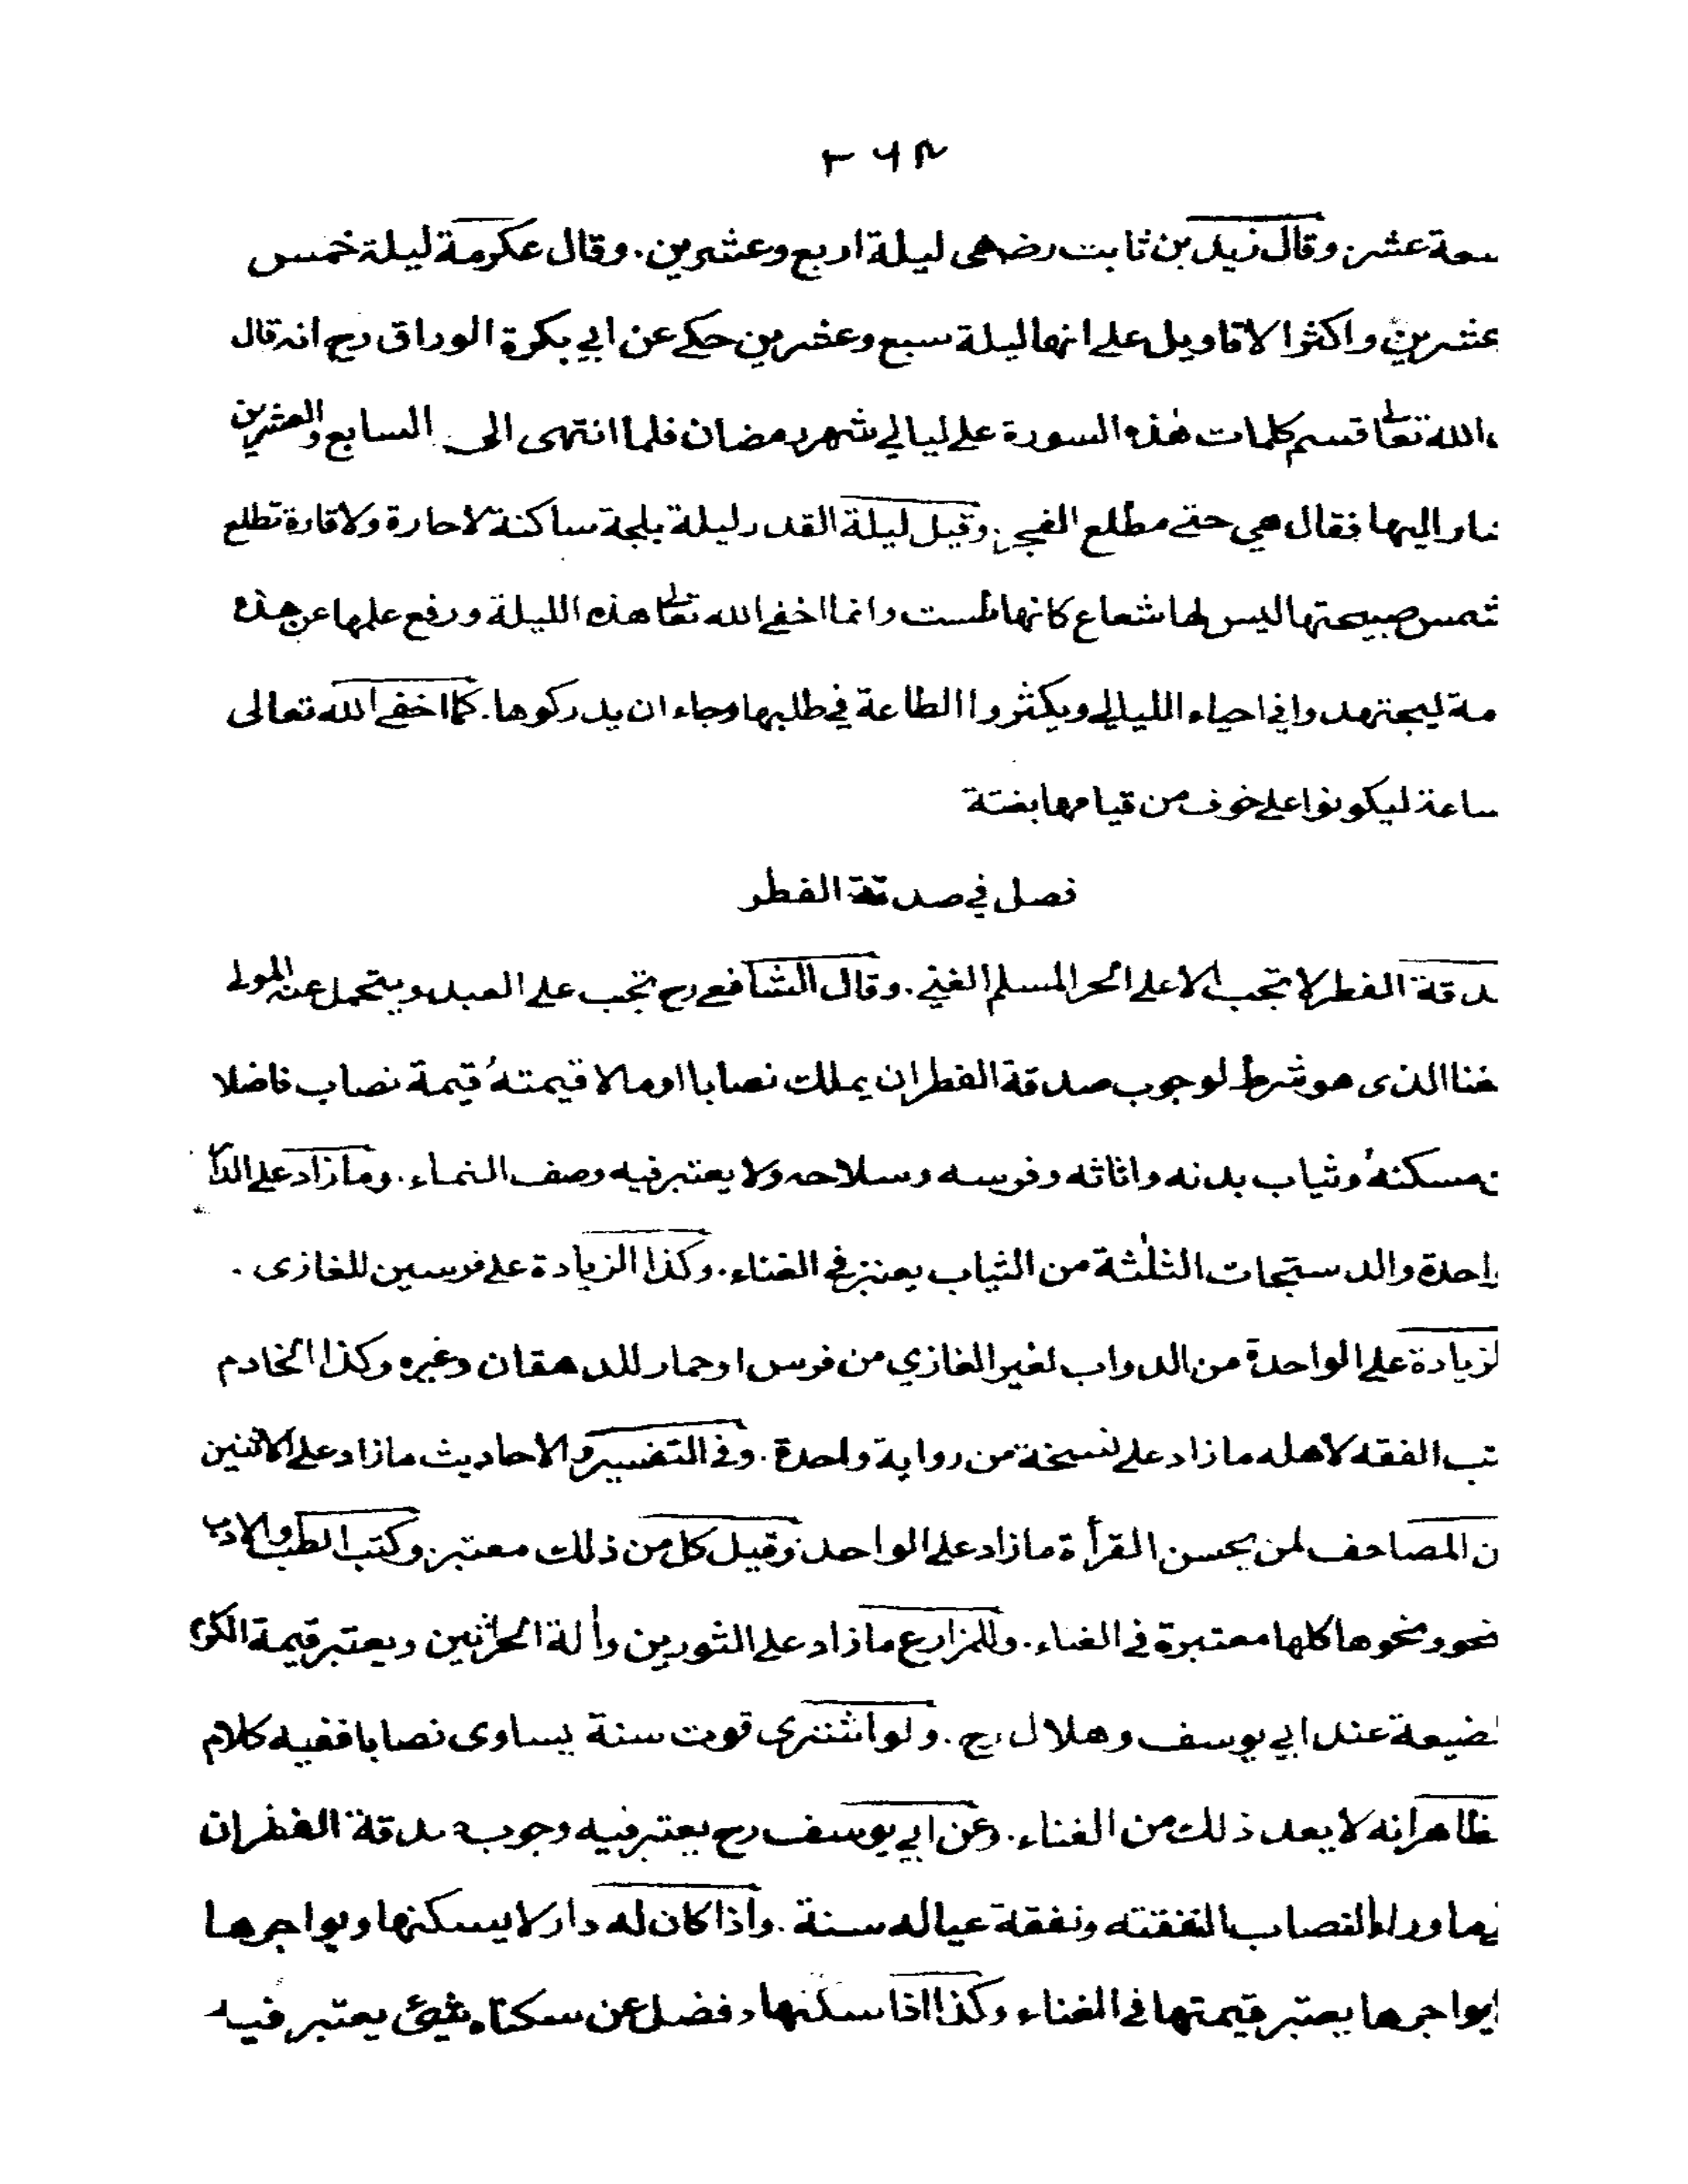 ٢٦٣
سعة عشر: وقال زيد بن ثابت رضـ هى ليلة اربع وعشرين. وقال عكرمة ليلة خمس
عشرين واكثر الاقاويل على انها ليلة سبع وعشرين حكى عن ابي بكرة الوراق رح انه قال
الله تعالى قسم كلمات هٰذه السورة على ليالي شهر رمضان فلما انتهى الى السابع والعشرين
شار اليها فقال هي حتى مطلع الفجر. وقيل ليلة القدر ليلة بلجة ساكنة لا حارة ولا قارة تطلع
شمس صبيحتها ليس لها شعاع كانها طست وانما اخفى الله تعالى هذه الليلة ورفع علمها عن هذه
مة ليجتهدوا في احياء الليالي ويكثروا الطاعة في طلبها رجاء ان يدركوها. كما اخفى الله تعالى
ساعة ليكونوا على خوف من قيامها بغتة
فصل في صدقة الفطر
صدقة الفطر لا تجب الا على الحر المسلم الغني. وقال الشافعي رح تجب على العبد ويتحمل عنه المولى
غنا الذى هو شرط لوجوب صدقة الفطر ان يملك نصابا او مالا قيمتهُ قيمة نصاب فاضلا
ن مسكنهُ وثياب بدنه واثاثه وفرسه وسلاحه ولا يعتبر فيه وصف النماء. وما زاد على الدا
واحدة والدستجات الثلٰثة من الثياب يعتبر في الغناء. وكذا الزيادة على فرسين للغازى.
لزيادة على الواحدة من الدواب لغير الغازي من فرس او حمار للدهقان وغيره وكذا الخادم
تب الفقه لاهله ما زاد على نسخة من رواية واحدة. وفي التفسير والاحاديث ما زاد على الاثنين
ن المصاحف لمن يحسن القرأة ما زاد على الواحد: وقيل كل من ذلك معتبر: وكتب الطب والادب
نحو ونحوها كلها معتبرة في الغناء. وللمزارع ما زاد على الثورين وألة الحراثين ويعتبر قيمة الكرم
لضيعة عند ابي يوسف وهلال رح. ولو اشترى قوت سنة يساوى نصابا ففيه كلام
ظاهر انه لا يعد ذلك من الغناء. وعن ابي يوسف رح يعتبر فيه وجوب صدقة الفطر ان
يما وراء النصاب لنفقته ونفقة عياله سنة. واذا كان له دار لا يسكنها ويواجرها
يواجرها يعتبر قيمتها في الغناء وكذا اذا سكنها وفضل عن سكناه شيئ يعتبر فيه